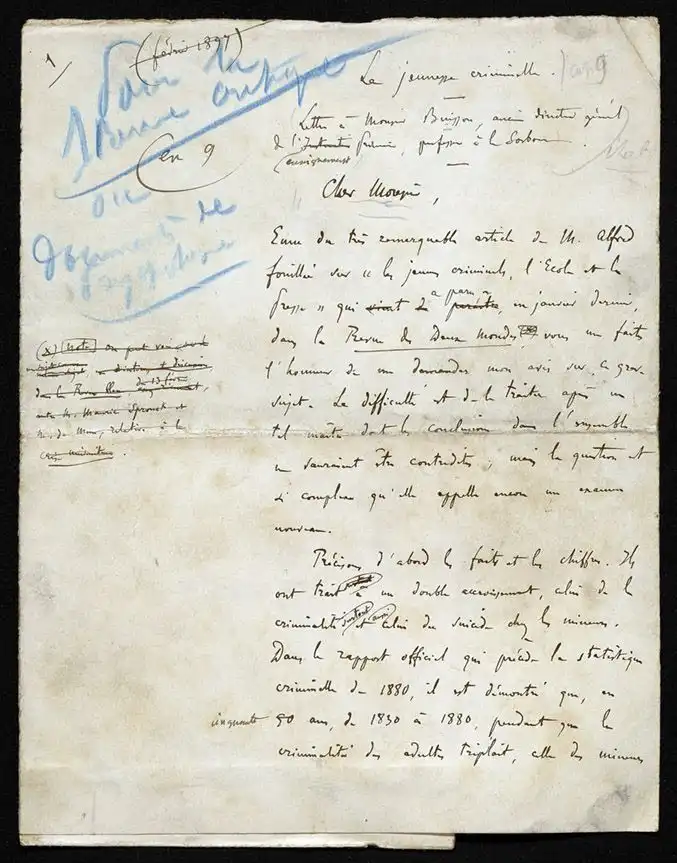 1/
(février 1897)
Pour la
Revue critique
en 9
ou
Documents de
La jeunesse criminelle.
Lettre à Monsieur Buisson, ancien directeur génél
de l'
enseignement
primaire, professeur à la Sorbonne.
Cher Monsieur,
Emu du très remarquable article de M. Alfred
Fouillée sur "les jeunes criminels, l'Ecole et la
Presse" qui vient de a paru en janvier dernier,
dans la Revue des Deux Mondes vous me faites
l'honneur de me demander mon avis sur ce grave
sujet. La difficulté est de le traiter après un
tel maître dont les conclusions dans l'ensemble
ne sauraient être contredites ; mais la question est
si complexe qu'elle appelle encore un examen
nouveau.
(x) (note) On peut voir
dans la Revue Bleue du 13 fév.
entre M. Maurice Spronck et
M. de Mun, relative à la
Précisons d'abord les faits et les chiffres. Ils
ont trait à un double accroissement, celui de la
criminalité surtout et aussi celui du suicide chez les mineurs.
Dans le rapport officiel qui précède la statistique
criminelle de 1880, il est démontré que, en
cinquante 50 ans, de 1830 à 1880, pendant que la
criminalité des adultes triplait, celle des mineurs